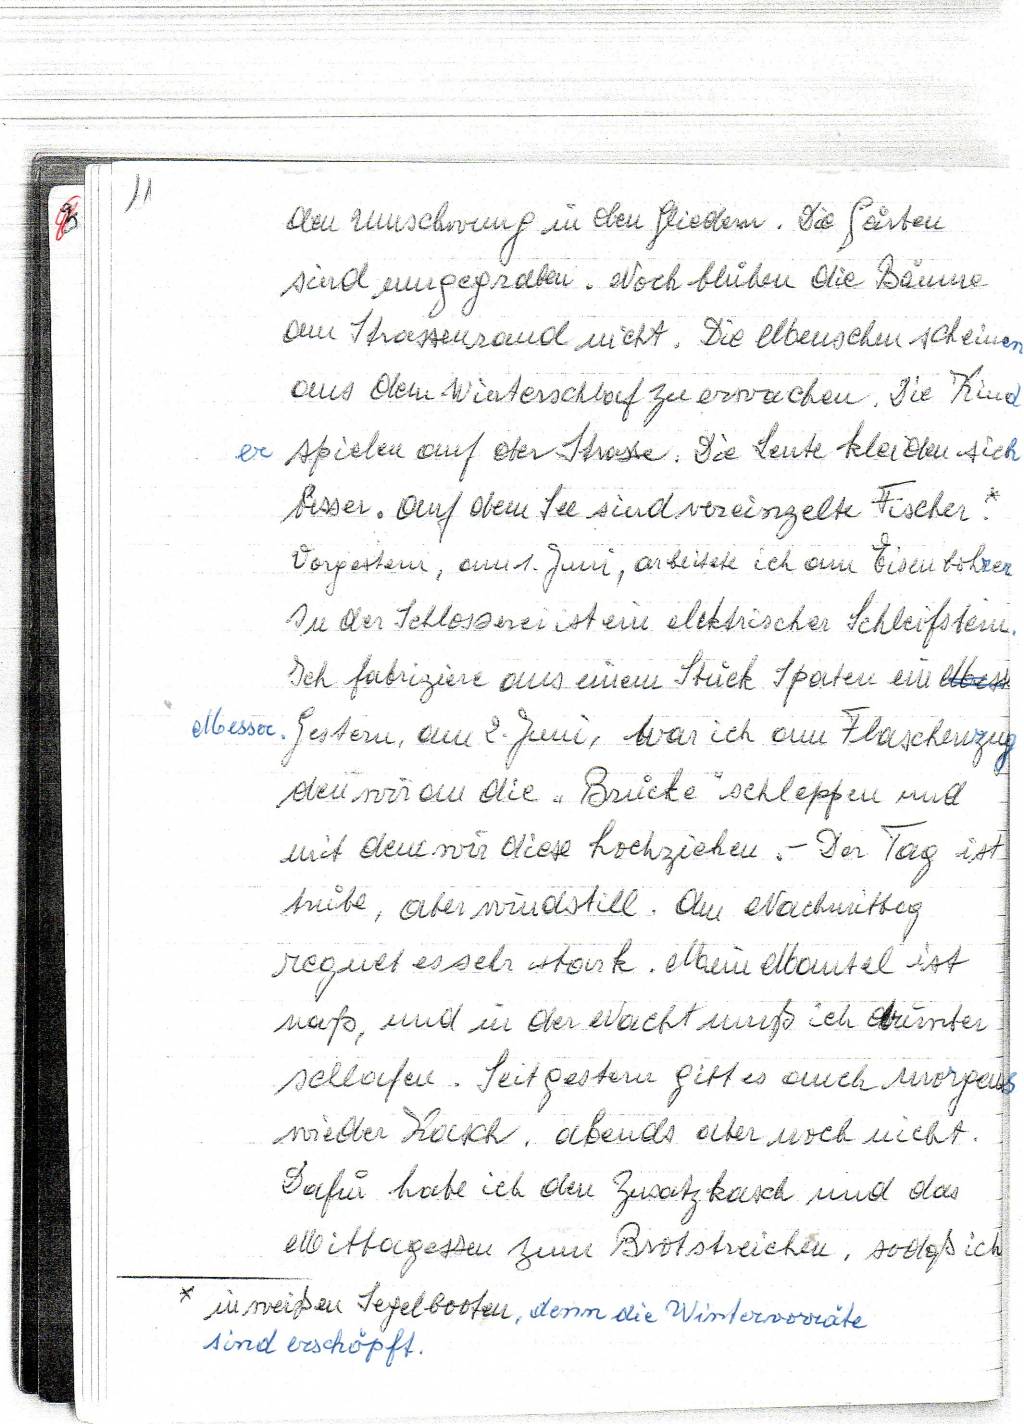 11
den Umschwung in den Gliedern. Die Gärten
sind umgegraben. Noch blühen die Bäume
am Strassenrand nicht. Die Menschen scheinen
aus dem Winterschlaf zu erwachen. Die Kind
er spielen auf der Strasse. Die Leute kleiden sich
besser. Auf dem See sind vereinzelte Fischer.*
Vorgestern, am 1. Juni, arbeitete ich am Eisenbohrer
In der Schlosserei ist ein elektrischer Schleifstein.
Ich fabriziere aus einem Stück Spaten ein Mess
Messer. Gestern, am 2. Juni, war ich am Flaschenzug
den wir an die „Brücke" schleppen und
mit dem wir diese hochziehen. – Der Tag ist
trübe, aber windstill. Am Nachmittag
regnet es sehr stark. Mein Mantel ist
naß, und in der Nacht muß ich drunter
schlafen. Seit gestern gibt es auch morgens
wieder Kasch, abends aber noch nicht.
Dafür habe ich den Zusatzkasch und das
Mittagessen zum Brotstreichen, sodaß ich
* in weißen Segelbooten, denn die Wintervorräte
sind erschöpft.